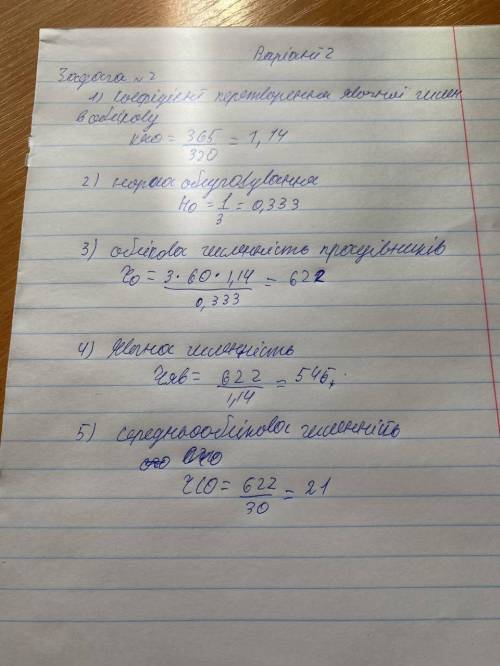 Варіант 2
Задача №2
1) Коефіцієнт перетворення явочної числен
в облікову
Кяо = 365/320 = 1,14
2) норма обслуговування
Но = 1/3 = 0,333
3) облікова численність працівників
Чо = 3·60·1,14/0,333 = 622
4) Явочна численність
Чяв = 622/1,14 = 546.
5) середньооблікова численність
ЧСО = 622/30 = 21